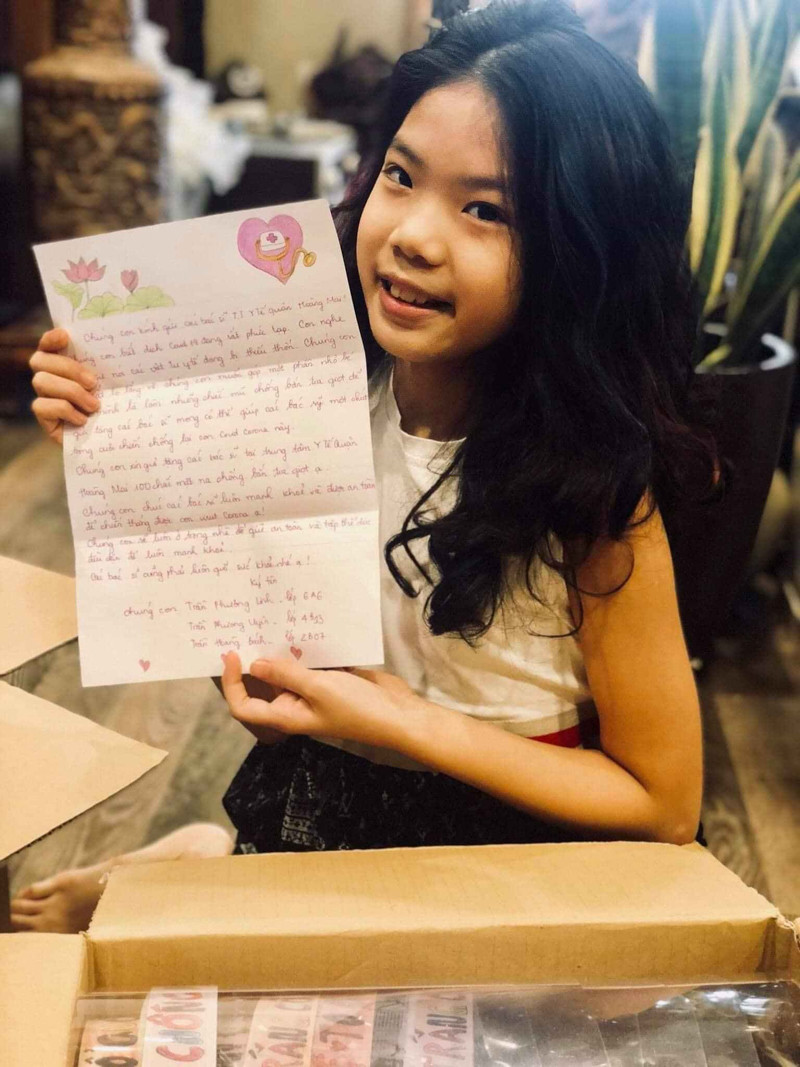 Chúng con kính gửi các bác sĩ T.T Y Tế quận Hoàng Mai!
con biết dịch Covid 19 đang rất phức tạp. Con nghe
nói cái vật tư y tế đang bị thiếu thốn. Chúng con
chúng con muốn góp một phần nhỏ bé
mình là làm những chiếc mũ chống bắn tia giọt để
quà tặng các bác sĩ mong có thể giúp các bác sỹ một chút
trong cuộc chiến chống lại con Covid corona này.
Chúng con xin quà tặng các bác sĩ tại trung tâm Y Tế Quận
Hoàng Mai 100 chiếc mặt nạ chống bắn tia giọt ạ
Chúng con chúc các bác sĩ luôn mạnh khoẻ và được an toàn
để chiến thắng được con virut Corona ạ!
Chúng con sẽ luôn ở trong nhà để giữ an toàn và tập thể dục
đều đặn để luôn mạnh khoẻ.
Các bác sĩ cũng phải luôn giữ sức khoẻ nhé ạ!
Ký tên
chúng con Trần Phương Linh - lớp 6A6
Trần Phương Uyên - lớp 4A13
Trần Hoàng Bách - lớp 2A07
CHỐNG
TRẤN